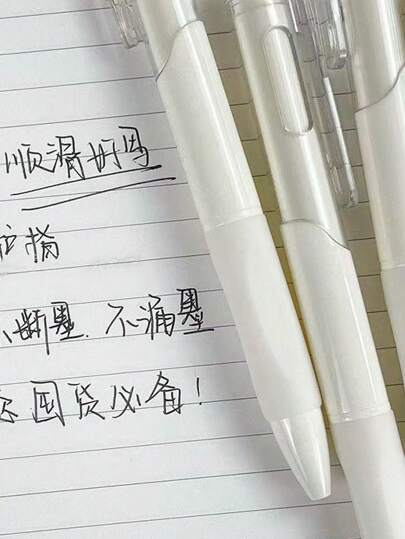 顺滑好写
护指
不断墨.不漏墨
囤货必备!